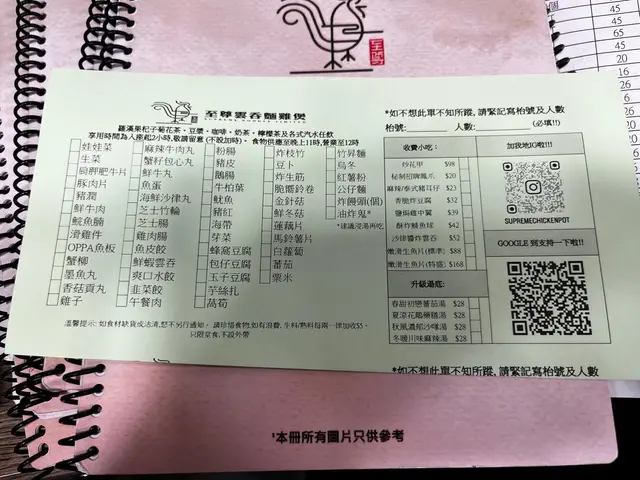 至尊
至尊雲吞麵雞煲
羅漢果杞子菊花茶、豆漿、咖啡、奶茶、檸檬茶及各式汽水任飲
享用時間為入座起2小時,敬請留意(不設加時)。食物供應至晚上11時,營業至12時
娃娃菜
生菜
肩胛肥牛片
豚肉片
豬潤
鮮牛肉
鯇魚腩
滑雞件
OPPA魚板
蟹柳
墨魚丸
香菇貢丸
雞子
麻辣牛肉丸
蟹籽包心丸
鮮牛丸
魚蛋
海鮮沙律丸
芝士竹輪
芝士腸
雞肉腸
魚皮餃
鮮蝦雲吞
爽口水餃
韮菜餃
午餐肉
粉腸
豬皮
鵝腸
牛栢葉
魷魚
豬紅
海帶
芽菜
蜂窩豆腐
包仔豆腐
玉子豆腐
芋絲扎
萵筍
炸枝竹
豆卜
炸生筋
脆擱鈴卷
金針菇
鮮冬菇
蓮藕片
馬鈴薯片
白蘿蔔
番茄
粟米
竹昇麵
烏冬
紅薯粉
公仔麵
炸饅頭(個)
油炸鬼*
*建議浸湯再吃
溫馨提示: 如食材缺貨或沽清,恕不另行通知。 請珍惜食物,如有浪費, 生料/熟料每兩一律加收$5。
只限堂食,不設外帶
*如不想此單不知所蹤, 請緊記寫枱號及人數
枱號: 人數: (必填!!)
收費小吃:
炒花甲 $98
秘制招牌鳳爪 $20
麻辣/泰式豬耳仔 $23
香脆炸雲吞 $32
鹽焗雞中翼 $39
酥炸鯪魚球 $42
沙律醬炸雲吞 $52
嫩滑生魚片(標準) $88
嫩滑生魚片(特盛) $168
升級湯底:
春甜初戀蕃茄湯 $28
夏涼花鵰藥膳湯 $28
秋風濃郁沙嗲湯 $28
冬暖川味麻辣湯 $28
加設地IG啦!!!
SUPREMECHICKENPOT
GOOGLE 到支持一下啦!!
*如不想此單不知所蹤, 請緊記寫枱號及人數
*本冊所有圖片只供參考
個
45
45
45
65
45
20
16
26